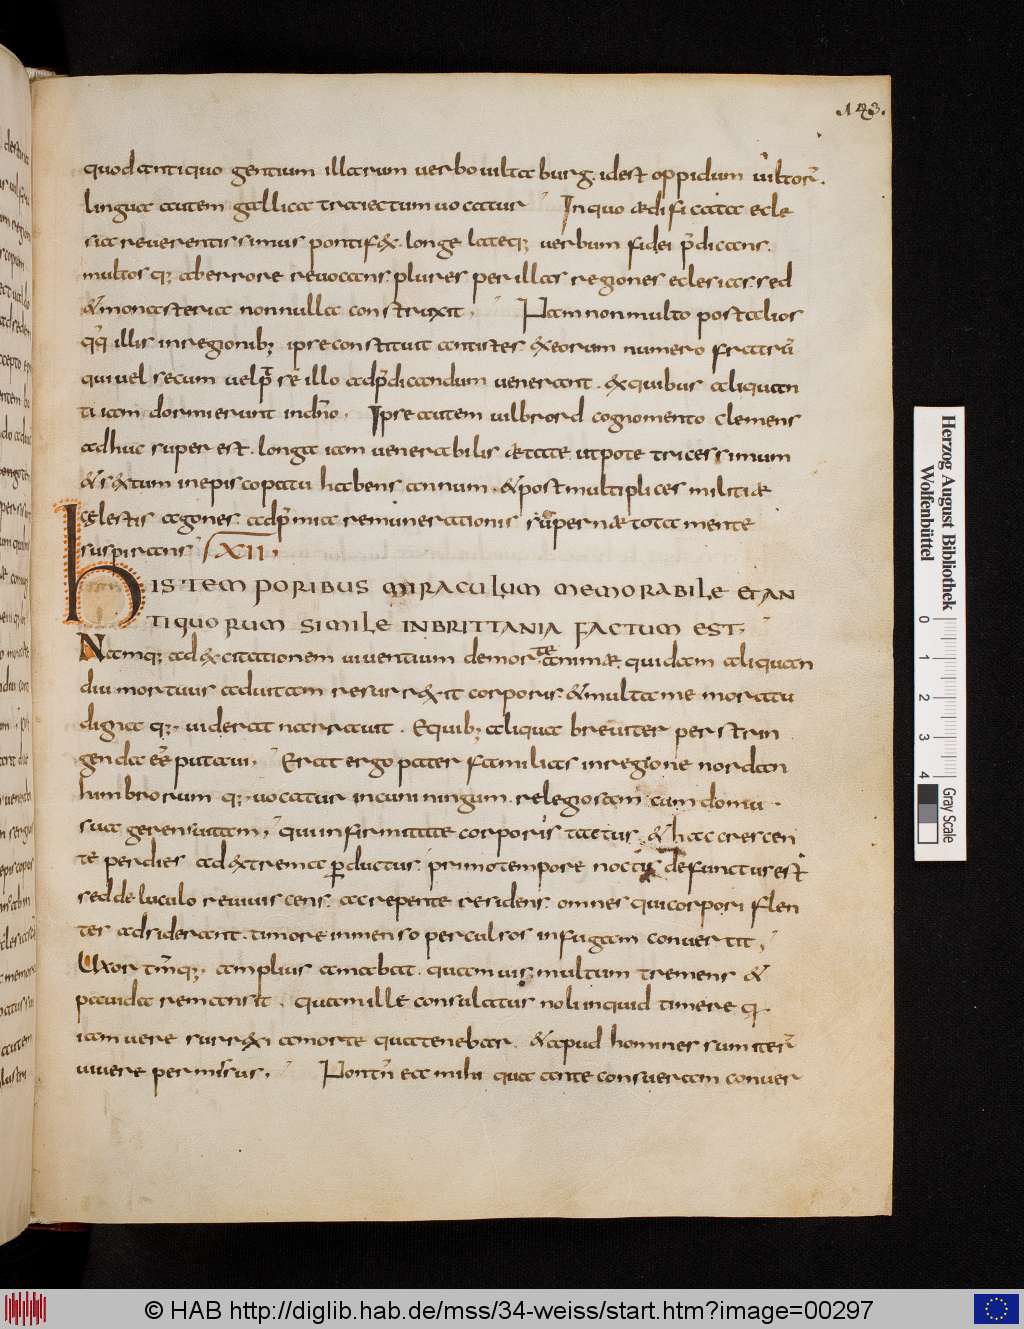 .143.
quod antiquo gentium illarum uerbo uilta burg. id est oppidum uiltor.
lingua autem gallica traiectum uocatur In quo ædificata ecle
sia reuerentissimus pontifex. longe lateq; uerbum fidei p̄dicans.
multosq; ab errore reuocans. plures per illas regiones eclesias. sed
& monasteria nonnulla construxit, Nam non multo post alios
q̄q illis in regionib; ipse constituit antistes. exeorum numero fratrū
qui uel secum uel p̄ se illo adp̄dicandum uenerant. ex quibus aliquan
ti iam dormierunt in dn̄o. Ipse autem uilbrord cognomento clemens
adhuc superest. longa iam uenerabilis ætate. utpote tricessimum
& sextum in episcopatu habens annum. & post multiplices militiæ
cęlestis agones. ad p̄mia remunerationis supernæ tota mente
suspirans XII,
his temporibus miraculum memorabile et an
tiquorum simile in brittania factum est,
Namq; ad excitationem uiuentium de morte animæ. quidam aliquan
diu mortuus ad uitam resurrexit corporis. & multa memoratu
digna q;. uiderat narrauit. E quib; aliqua breuiter perstrin
genda eē putaui, Erat ergo pater familias in regione nordan
humbrorum q;. uocatur incuniningum. relegiosam cum domu
sua gerens uitam, qui infirmitate corporis tactus. & hac crescen
te per dies ad extrema pductus. primo tempore noctis defunctus est
sed de luculo reuiuiscens. ac repente residens. omnes qui corpori flen
ter adsiderant. timore inmenso perculsos in fugam conuertit,
Uxor tm̄q;. amplius amabat. quamuis multum tremens &
pauida remansit. quam ille consulatus noli inquid timere q.
iam uere surrexi a morte qua tenebar. & apud homines sum iter
uiuere permissus, Non tn̄ ea mihi qua ante consueram conuer
Herzog August Bibliothek
Wolfenbüttel
0 1 2 3 4
Gray Scale
© HAB http://diglib.hab.de/mss/34-weiss/start.htm?image=00297